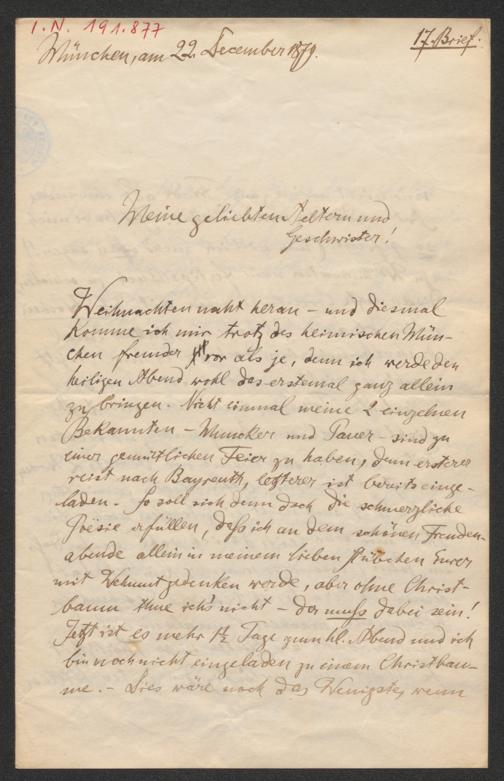 I.N. 191.877
17. Brief.
München, am 22. December 1879.
Meine geliebten Aeltern und
Geschwister!
Weihnachten naht heran – und diesmal
komme ich mir trotz des heimischen Mün-
chen fremder vor als je, denn ich werde den
heiligen Abend wohl das erstemal ganz allein
zu bringen. Nicht einmal meine 2 einzelnen
Bekannten – Muncker und Pauer – sind zu
einer gemütlichen Feier zu haben, denn ersterer
reist nach Bayreuth, letzterer ist bereits einge-
laden. So soll sich denn doch die schmerzliche
Poësie erfüllen, daß ich an dem schönen Freuden-
abende allein in meinem lieben Stübchen Eurer
mit Wehmut gedenken werde, aber ohne Christ-
baum thue ich's nicht – der muß dabei sein!
Jetzt ist es mehr 1½ Tage zum hl. Abend und ich
bin noch nicht eingeladen zu einem Christbau-
me. – Dies wäre noch das Wenigste, wenn